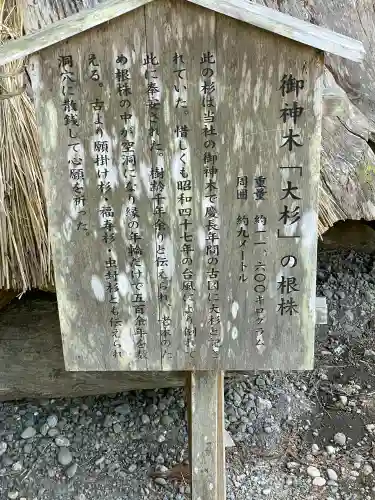 御神木「大杉」の根株
重量 約一一、六〇〇キログラム
周囲 約九メートル
此の杉は当社の御神木で慶長年間の古図に大杉と記さ
れていた。惜しくも昭和四十七年の台風により倒れて
此に奉安された。樹齢千年余りと伝えられ、老木のた
め根株の中が空洞になり縁の年輪だけで五百余りを数
える。古より願掛け杉・福寿杉・虫封杉と伝えられ
洞穴に散銭して心願を祈った。